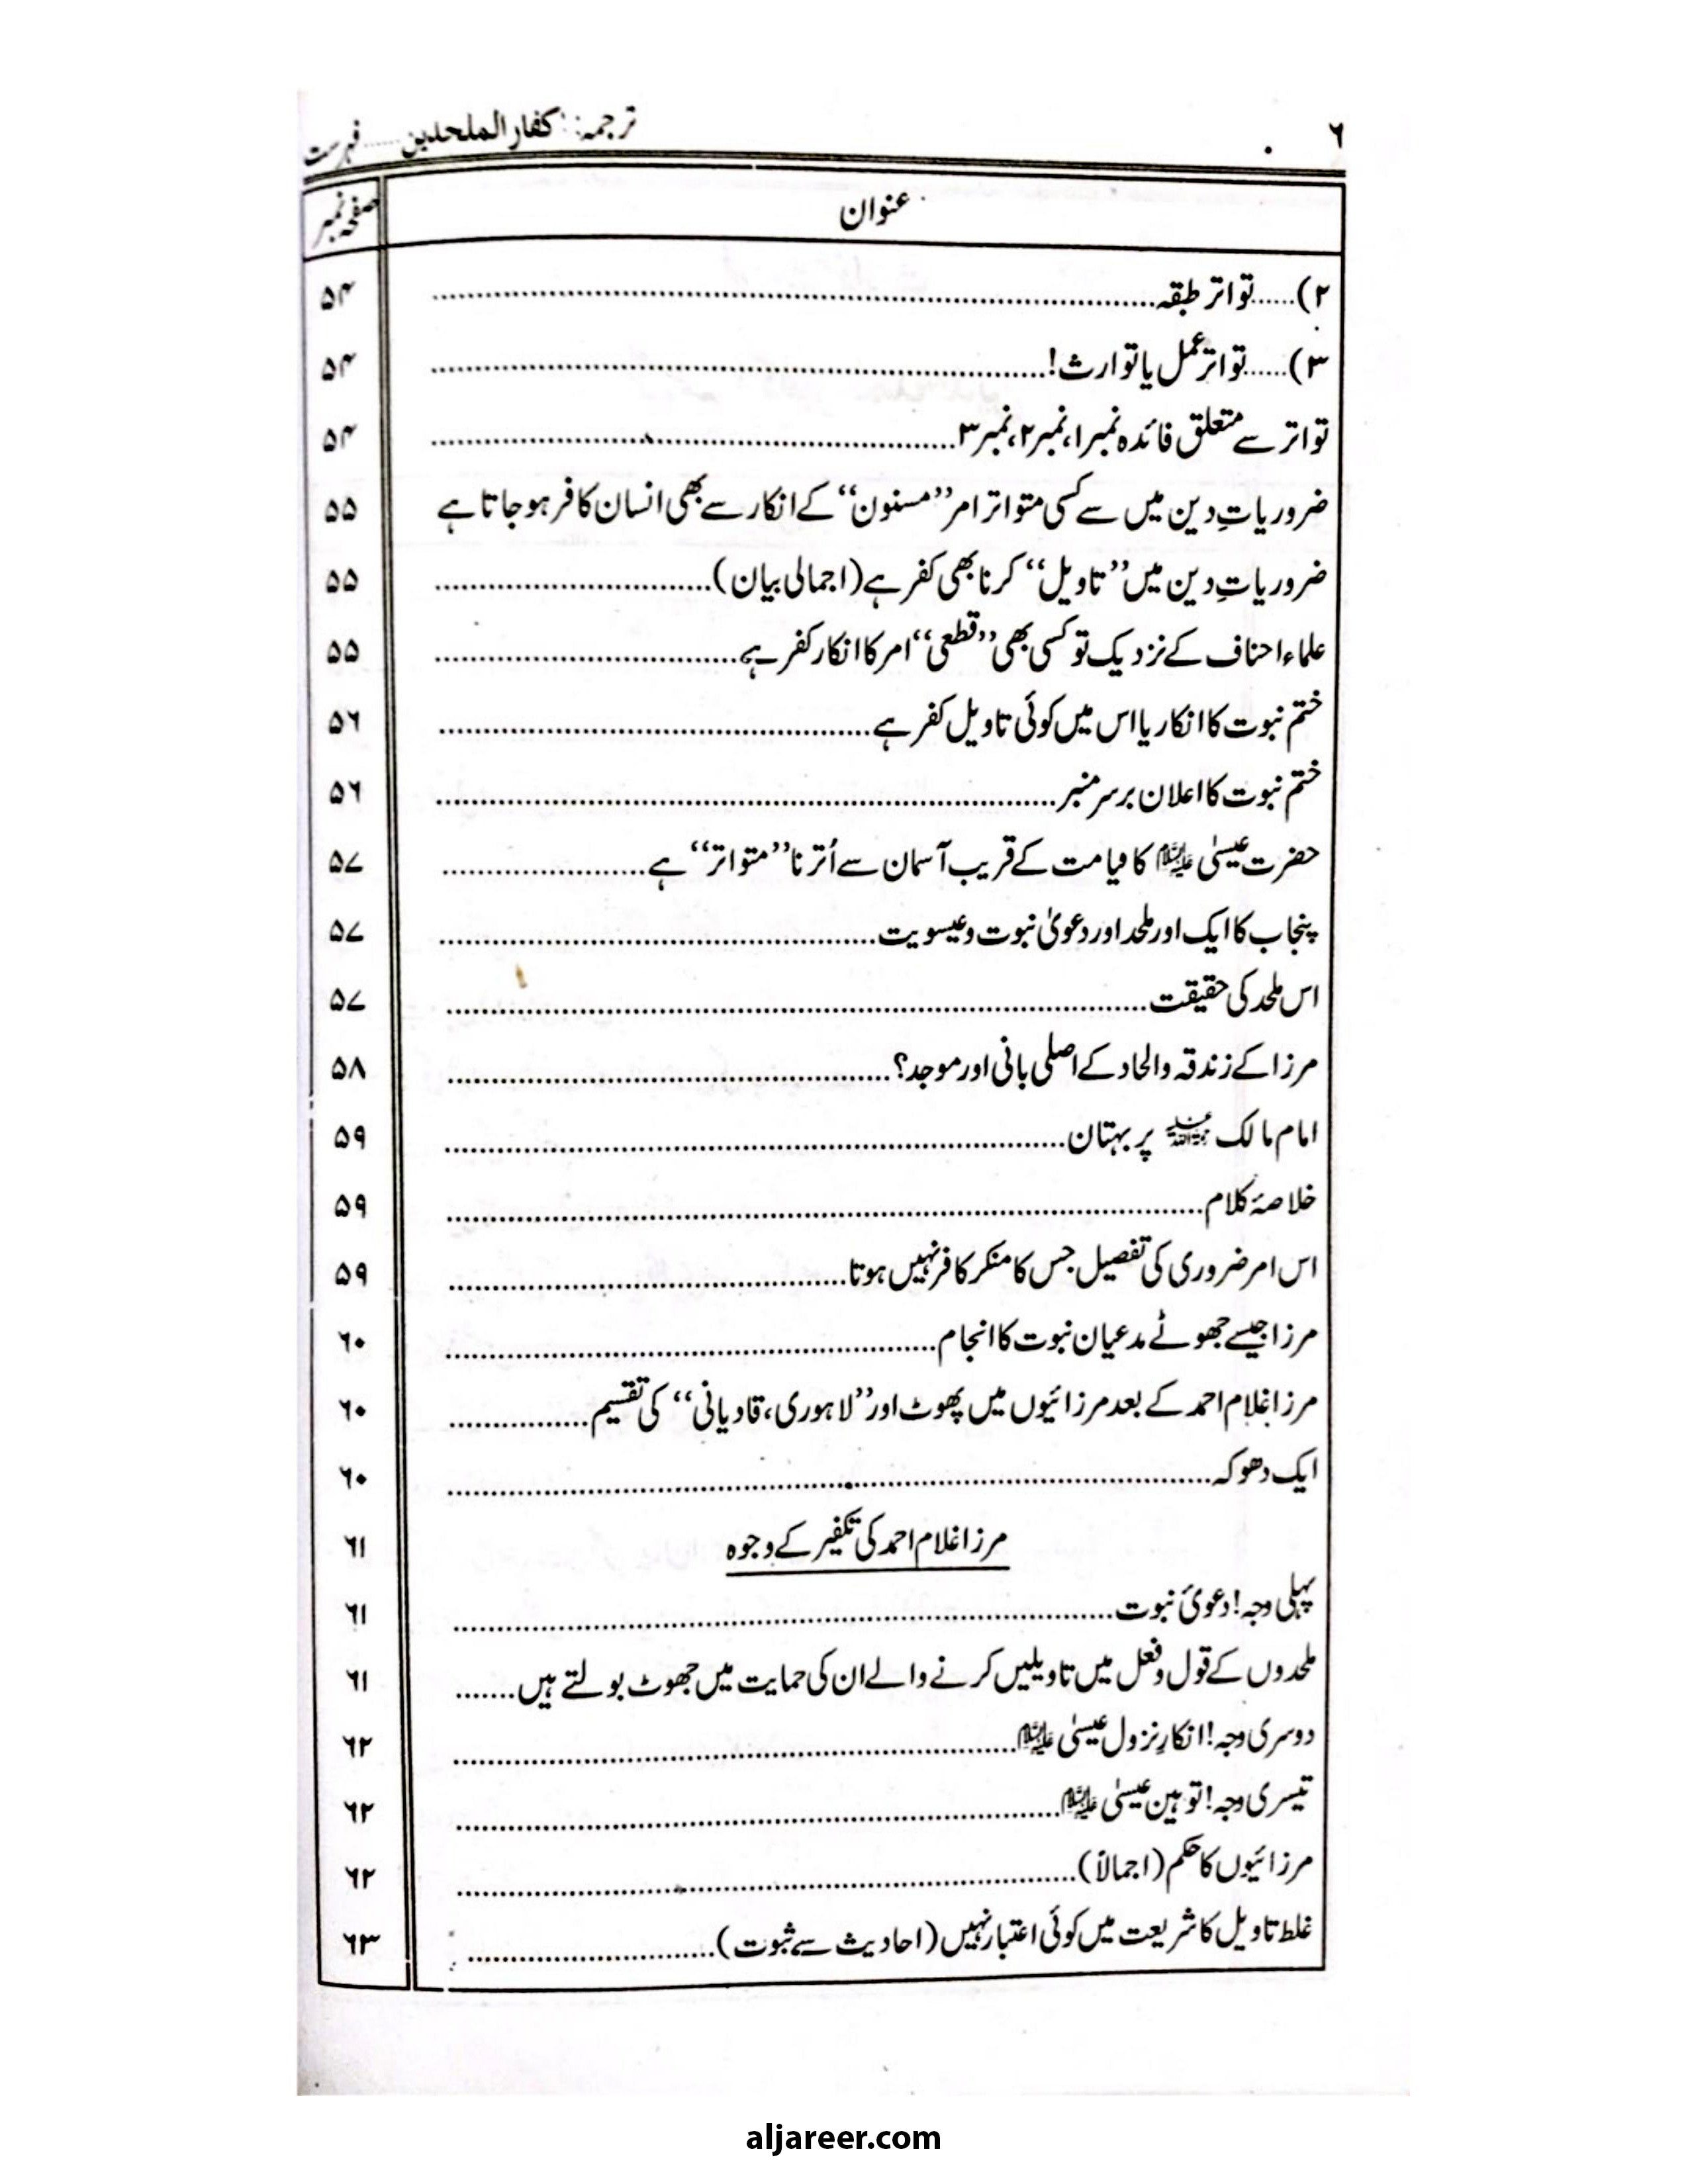 ۶ ترجمہ: اکفار الملحدین ...... فہرست
عنوان صفحہ نمبر
۲)......تواتر طبقہ ۵۴
۳)......تواتر عمل یا توارث! ۵۴
تواتر سے متعلق فائدہ نمبر۱، نمبر۲، نمبر۳ ۵۴
ضروریاتِ دین میں سے کسی متواتر امر ’’مسنون‘‘ کے انکار سے بھی انسان کافر ہو جاتا ہے ۵۵
ضروریاتِ دین میں ’’تاویل‘‘ کرنا بھی کفر ہے (اجمالی بیان) ۵۵
علماء احناف کے نزدیک تو کسی بھی ’’قطعی‘‘ امر کا انکار کفر ہے ۵۵
ختم نبوت کا انکار یا اس میں کوئی تاویل کفر ہے ۵۶
ختم نبوت کا اعلان برسر منبر ۵۶
حضرت عیسیٰ علیہ السلام کا قیامت کے قریب آسمان سے اُترنا ’’متواتر‘‘ ہے ۵۷
پنجاب کا ایک اور ملحد اور دعویٰ نبوت و عیسویت ۵۷
اس ملحد کی حقیقت ۵۷
مرزا کے زندقہ والحاد کے اصلی بانی اور موجد؟ ۵۸
امام مالک رحمۃ اللہ علیہ پر بہتان ۵۹
خلاصۂ کلام ۵۹
اس امر ضروری کی تفصیل جس کا منکر کافر نہیں ہوتا ۵۹
مرزا جیسے جھوٹے مدعیان نبوت کا انجام ۶۰
مرزا غلام احمد کے بعد مرزائیوں میں پھوٹ اور ’’لاہوری، قادیانی‘‘ کی تقسیم ۶۰
ایک دھوکہ ۶۰
مرزا غلام احمد کی تکفیر کے وجوہ ۶۱
پہلی وجہ! دعویٔ نبوت ۶۱
ملحدوں کے قول و فعل میں تاویلیں کرنے والے ان کی حمایت میں جھوٹ بولتے ہیں ۶۱
دوسری وجہ! انکارِ نزول عیسیٰ علیہ السلام ۶۲
تیسری وجہ! توہین عیسیٰ علیہ السلام ۶۲
مرزائیوں کا حکم (اجمالاً) ۶۲
غلط تاویل کا شریعت میں کوئی اعتبار نہیں (احادیث سے ثبوت) ۶۳
aljareer.com